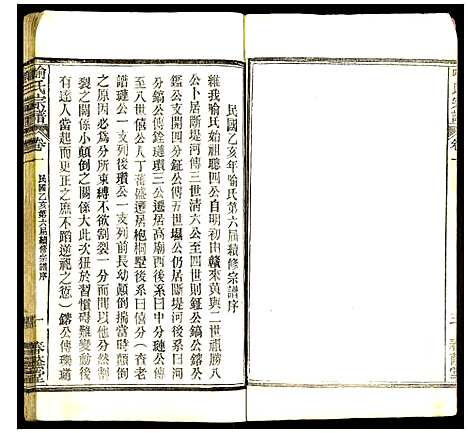 民國乙亥年喻氏第六屆續修宗譜序
維我喻氏始祖聰四公自明初由贛來黃與二世祖勝八
公卜居斷堤河傳三世清六公至四世則鉦公鎬公鎔公
鑑公支開四分鉦公傳五世堀公仍居斷堤河後系曰一
分鎬公傳銓璉瓚三公遷居高廟西後系曰二分連公傳
至八世僖公人丁蕃盛遷居枹桐墅後系曰僖分（查老
譜璉公一支列後瓚公一支列前長幼顛倒揣當時顛倒
之原因必為分所束縛不欲割裂一分而間以他分然割
裂之關係小顛倒之關係大此次狃於習慣碍難變動後
有達人當起而更正之庶不蹈逆祀之愆）鎔公傳瓊瑤
喻氏宗譜
卷一
民國乙亥第六屆續修宗譜序
一